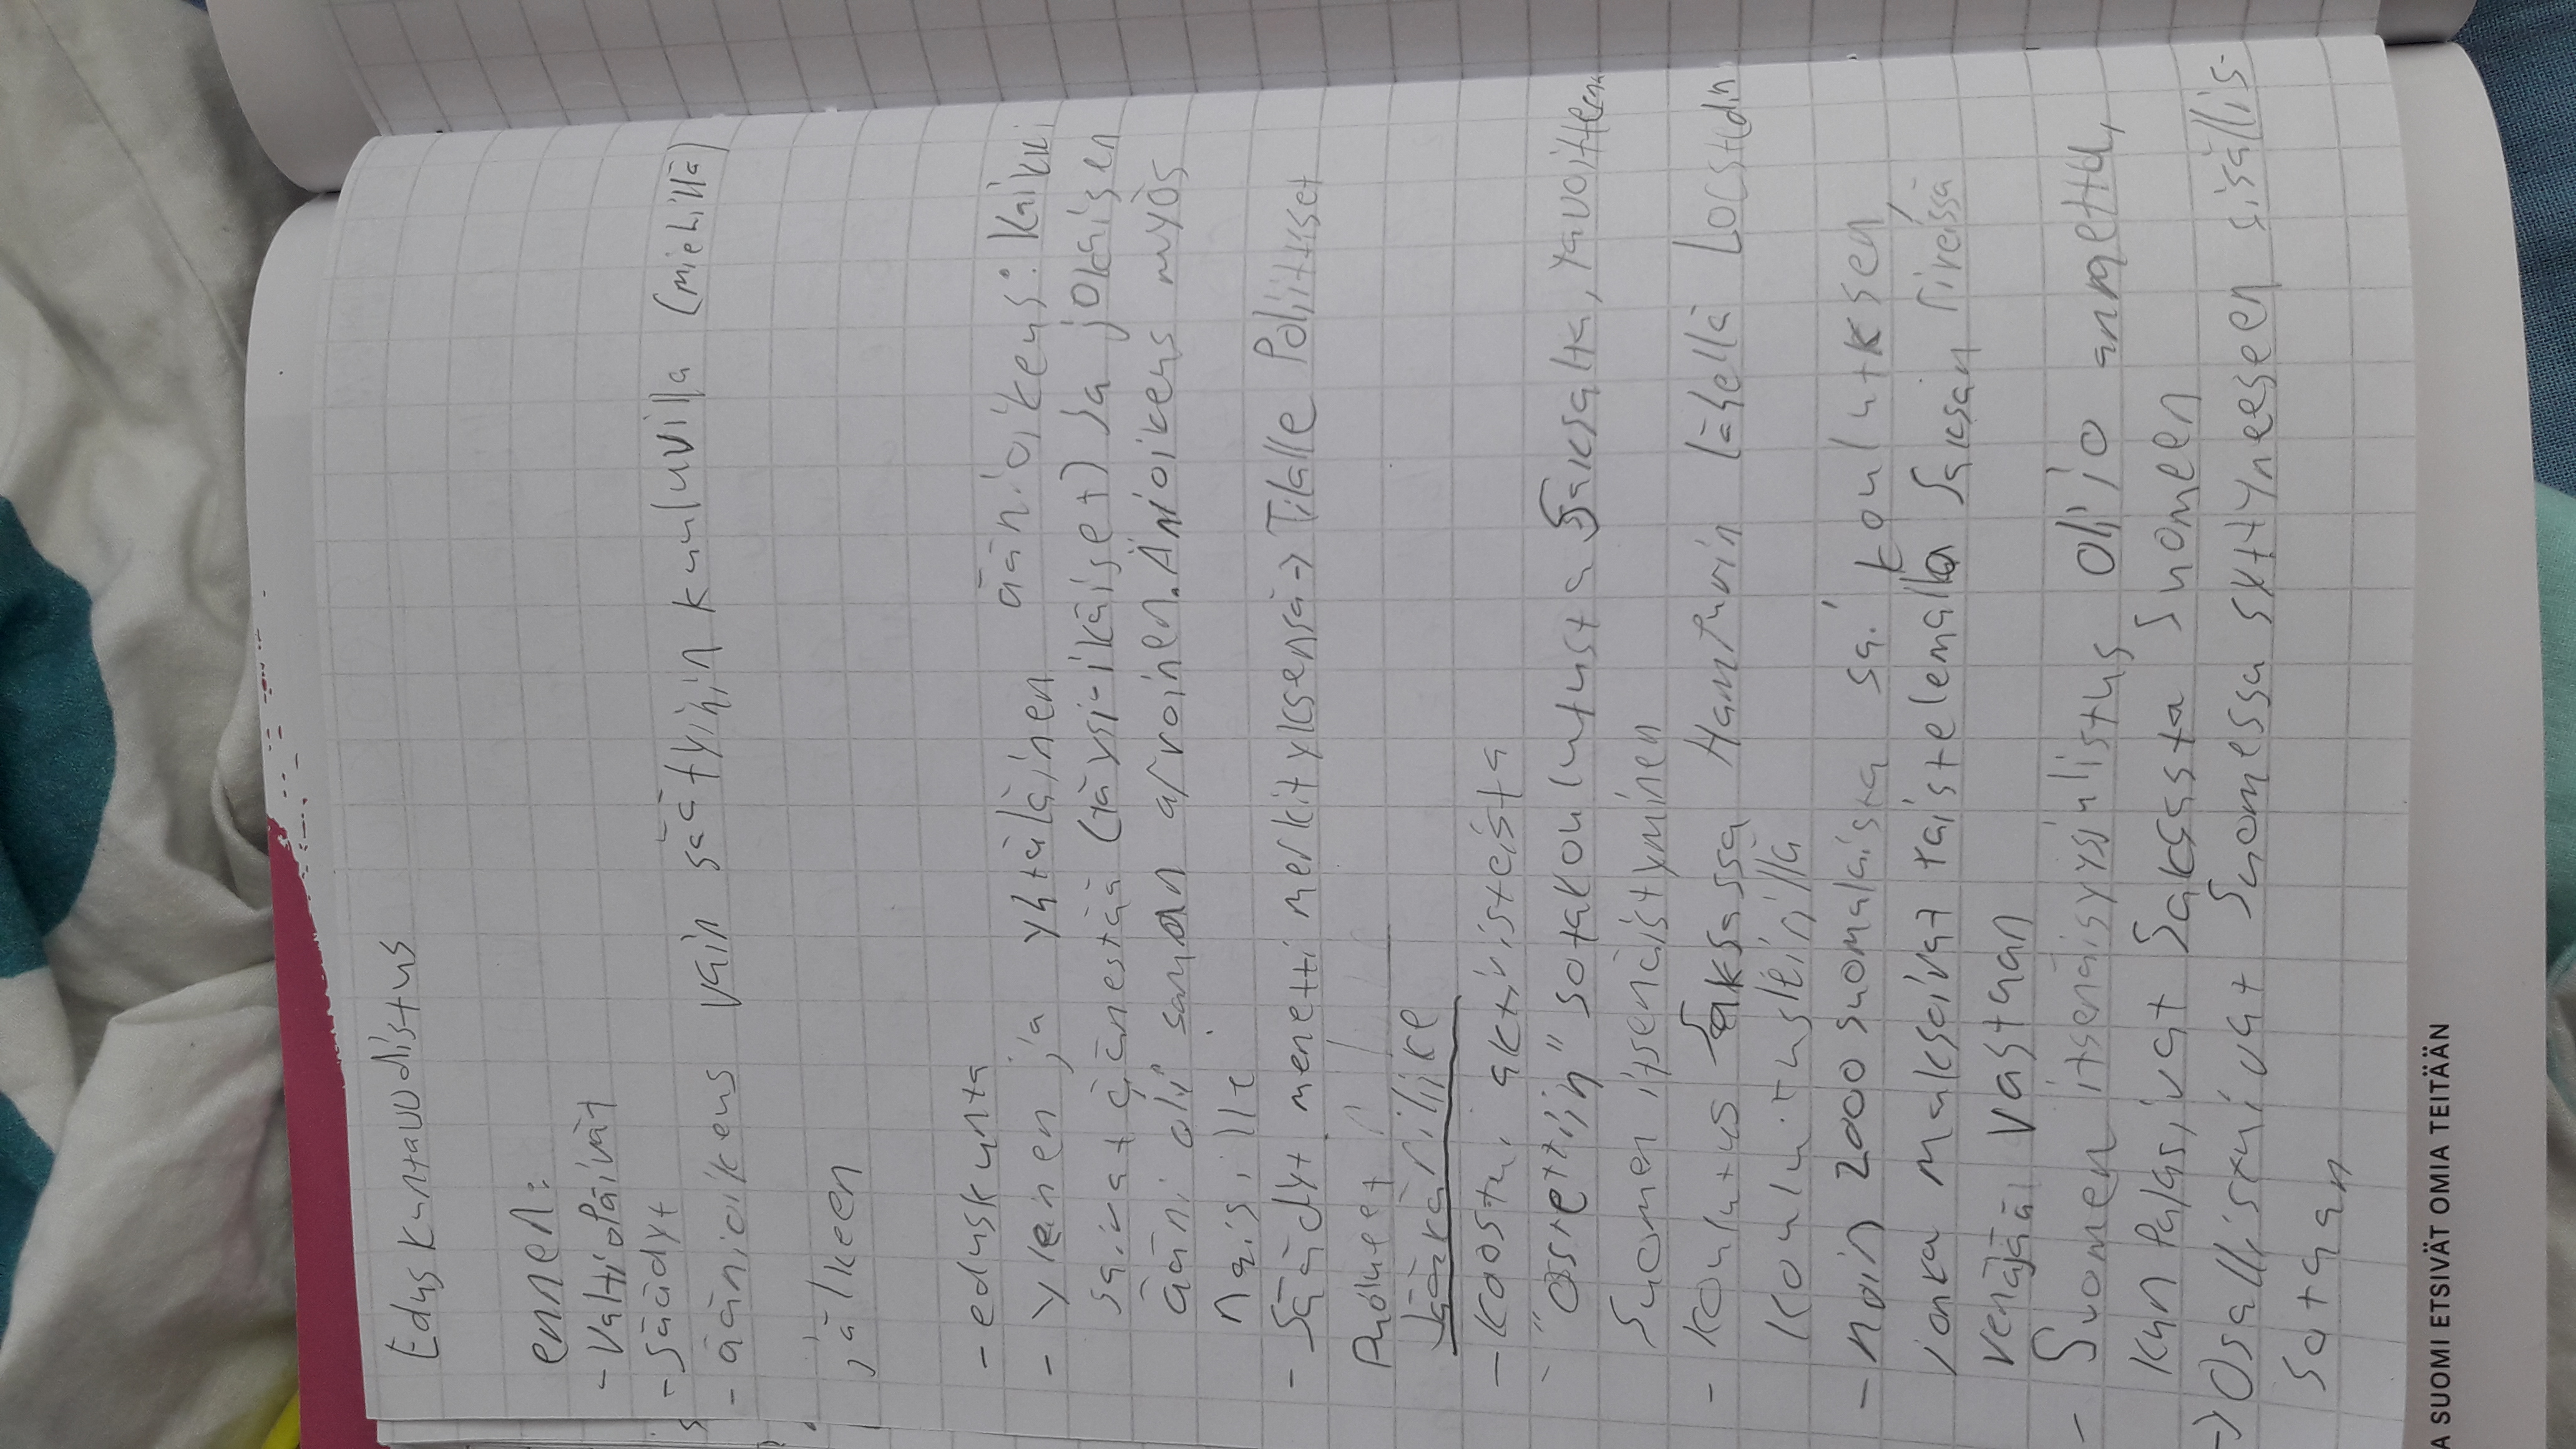 Eduskuntauudistus
ennen:
- Valtiopäivät
- Säädyt
- äänioikeus vain säätyihin kuuluvilla (miehillä)
jälkeen
- eduskunta
- yleinen ja yhtäläinen äänioikeus: kaikki
saivat äänestää (täysi-ikäiset) Ja jokaisen
ääni oli saman arvoinen. Änioikeus myös
naisille
- Säädyt menetti merkityksensä -> Tilalle Poliittiset
Puolueet
Jääkäriliike
- koostui aktivisteista
- "Ossrettiin" sotakoulutusta Saksalta, tavoitteena
Suomen itsenäistyminen
- koulutus Saksassa Hampurin lähellä Locstedin
koulutusleirillä
- noin 2000 suomalaista sai koulutksen
jonka maksoivat taistelemalla Saksan riveissä
venäjää vastaan
- Suomen itsenäisyysjulistus oli jo annettu,
kun palasivat Saksasta Suomeen
-> Osallistuivat Suomessa syttyneeseen sisällis-
sotaan
A SUOMI ETSIVÄT OMIA TEITÄÄN